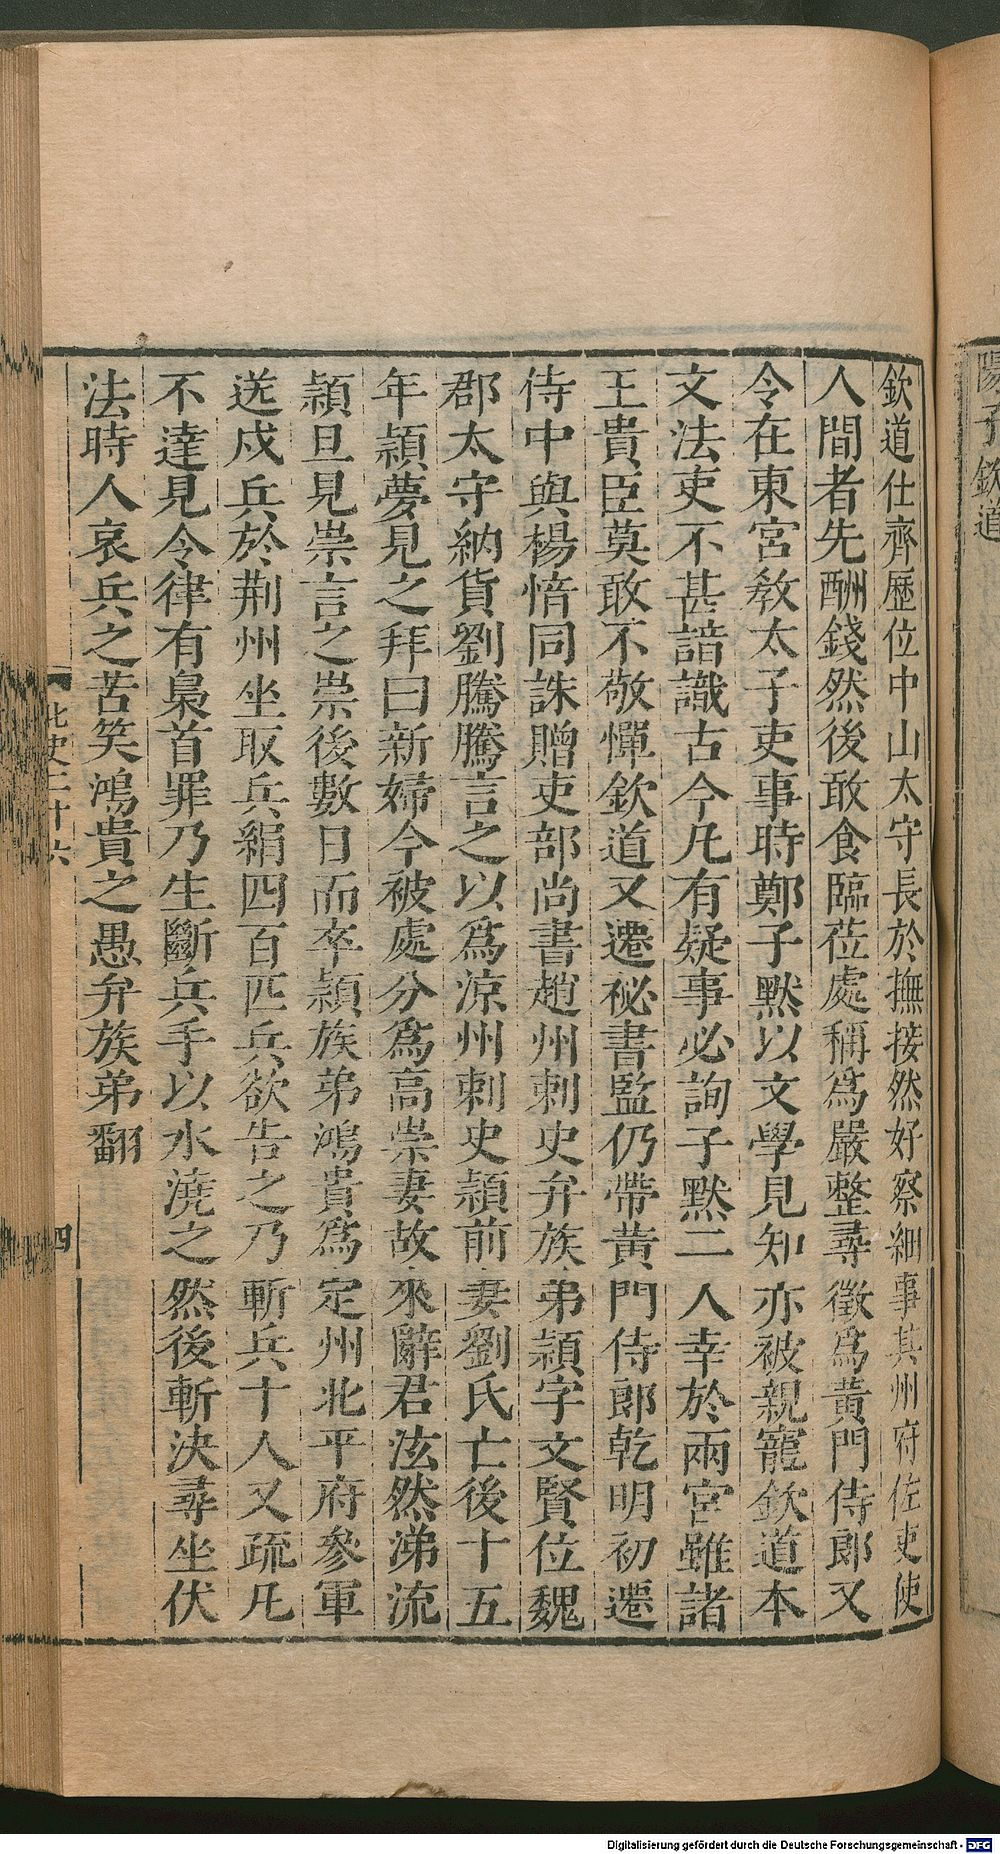 陽子欽道
欽道仕齊歷位中山太守長於撫接然好察細事其州府佐吏使
人間者先酬錢然後敢食臨莅處稱爲嚴整尋徵爲黃門侍郎又
令在東宮敎太子吏事時鄭子默以文學見知亦被親寵欽道本
文法吏不甚諳識古今凡有疑事必詢子默二人幸於兩宮雖諸
王貴臣莫敢不敬憚欽道又遷祕書監仍帶黃門侍郎乾明初遷
侍中與楊愔同誅贈吏部尚書趙州刺史弁族弟穎字文賢位魏
郡太守納貨劉騰騰言之以爲涼州刺史穎前妻劉氏亡後十五
年穎夢見之拜曰新婦今被處分爲高崇妻故來辭君泫然涕流
穎旦見崇言之崇後數日而卒穎族弟鴻貴爲定州北平府參軍
送戍兵於荆州坐取兵絹四百匹兵欲告之乃斬兵十人又疏凡
不達見令律有梟首罪乃生斷兵手以水澆之然後斬決尋坐伏
法時人哀兵之苦笑鴻貴之愚弁族弟翻
北史二十六
四
Digitalisierung gefördert durch die Deutsche Forschungsgemeinschaft - DFG